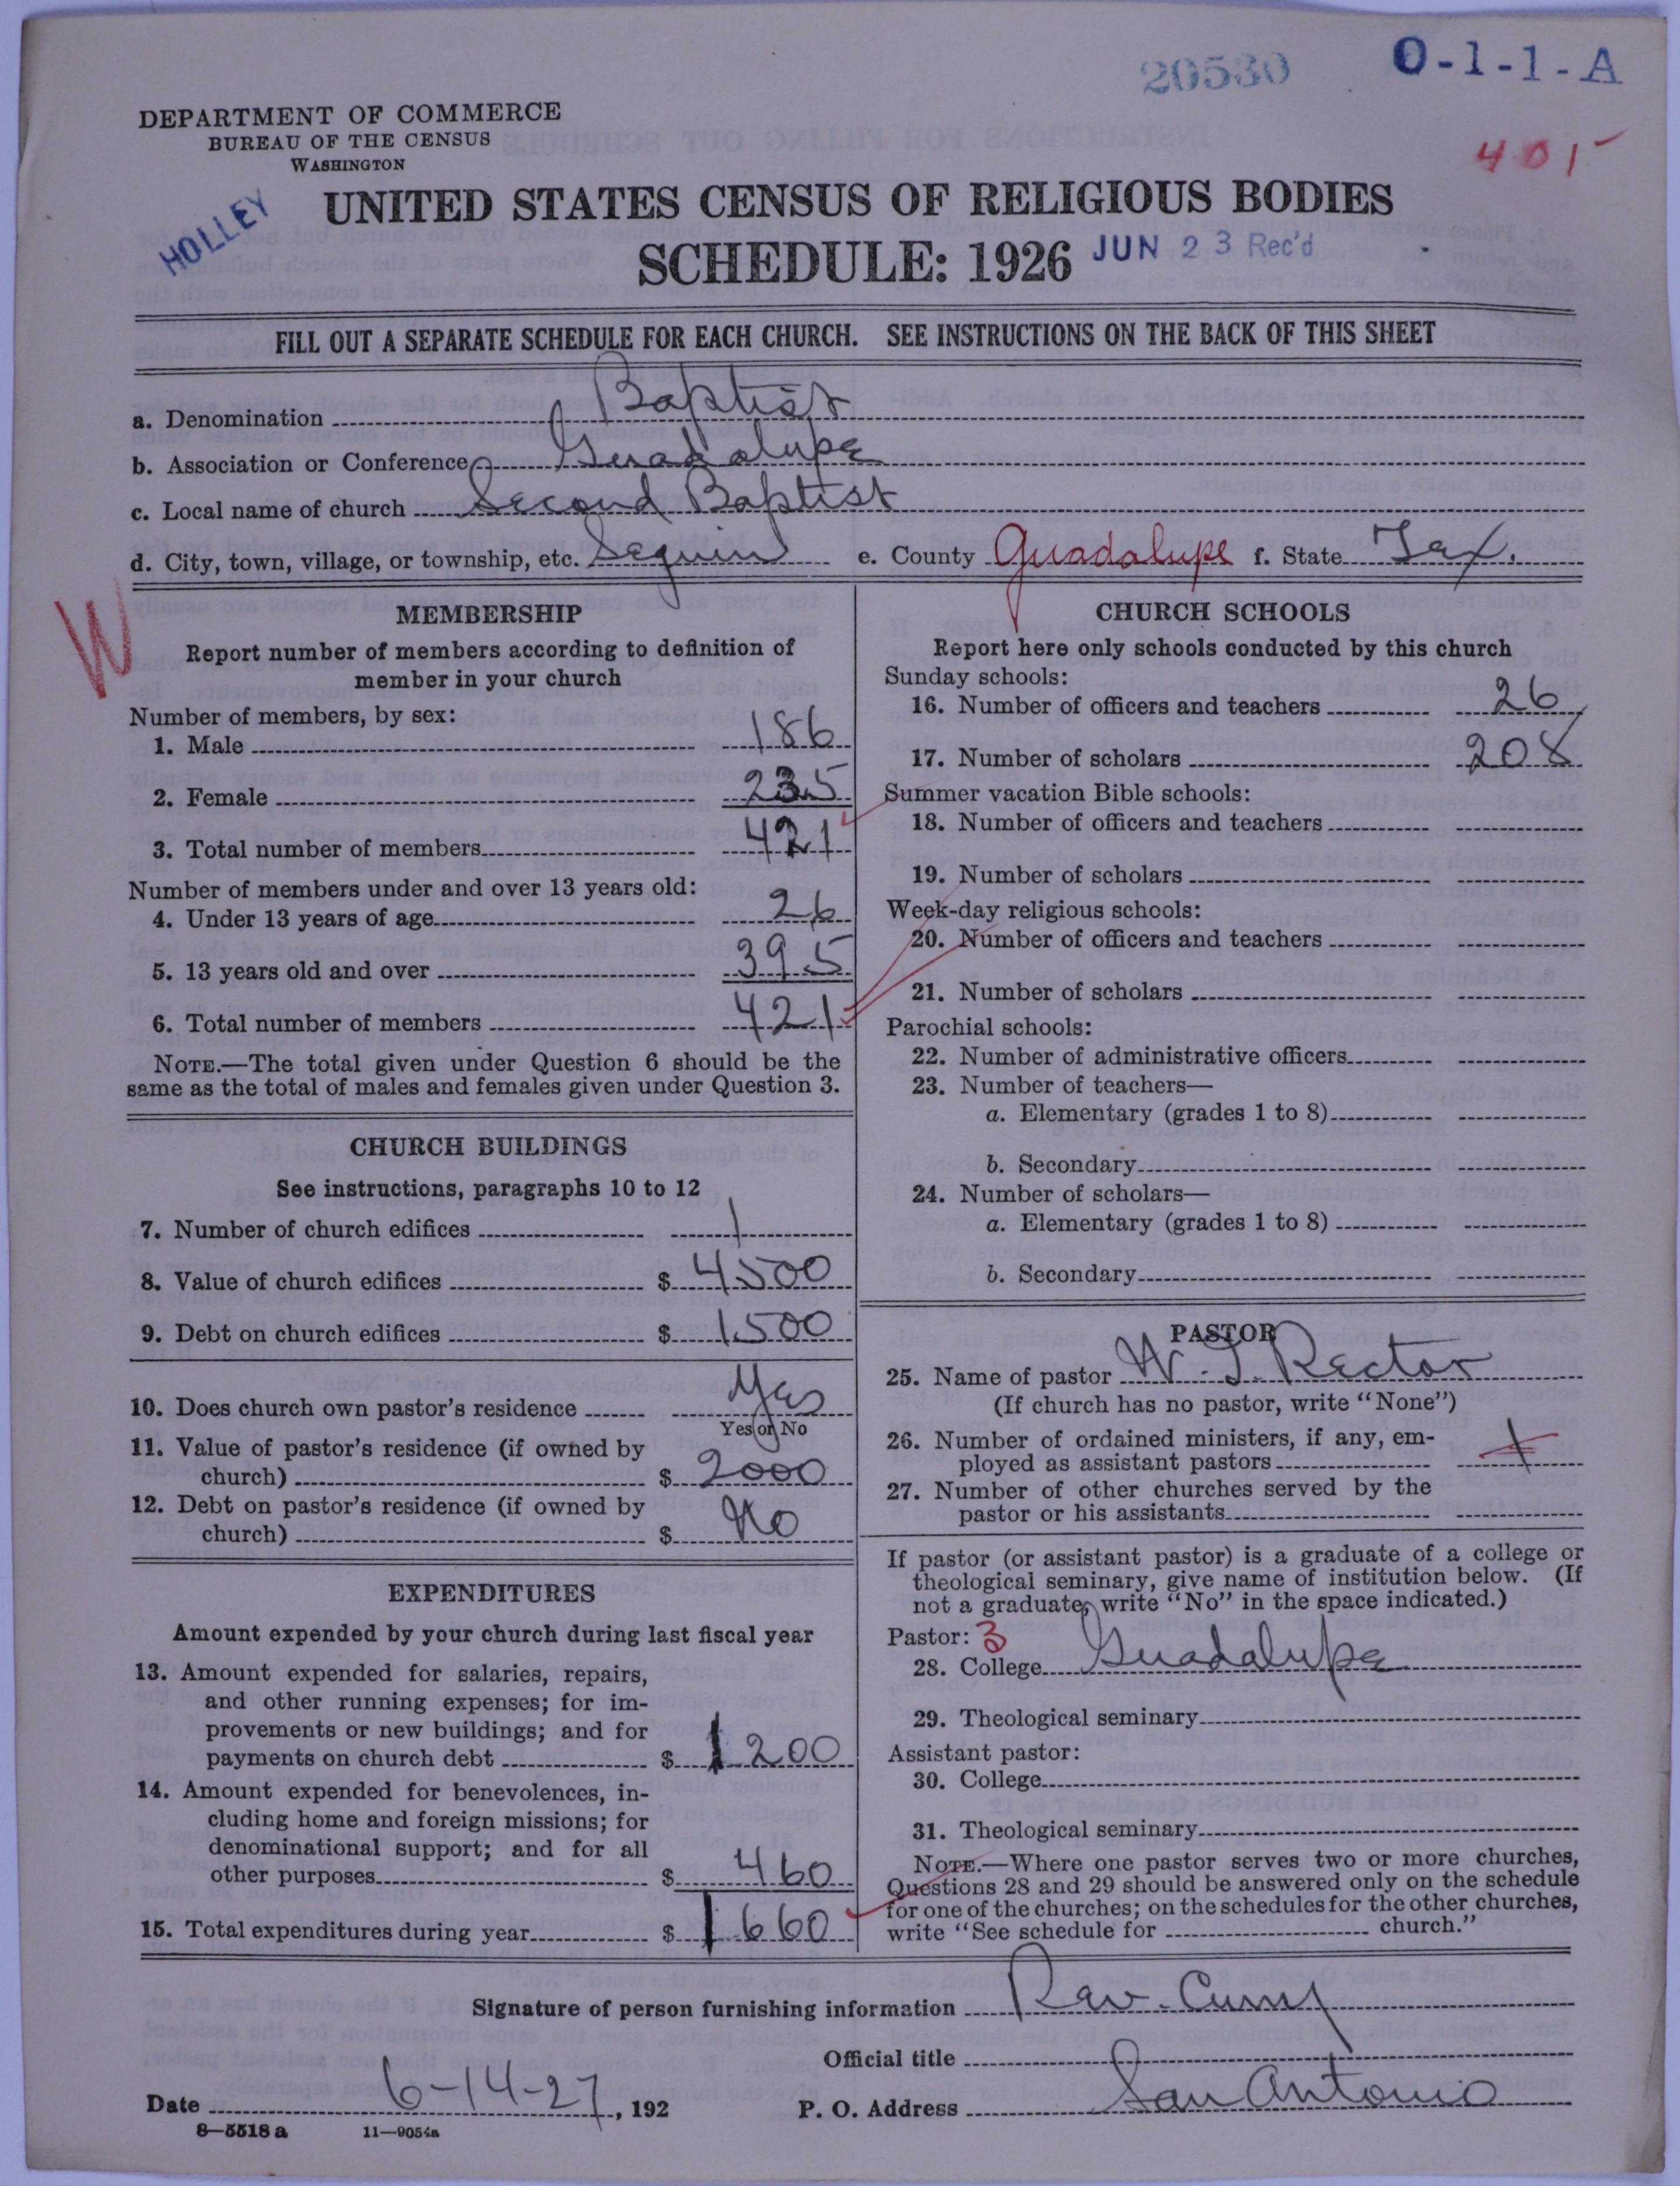 20530
O-1-1-A
401
DEPARTMENT OF COMMERCE
BUREAU OF THE CENSUS
WASHINGTON
HOLLEY
UNITED STATES CENSUS OF RELIGIOUS BODIES
SCHEDULE: 1926
JUN 23 Rec'd
FILL OUT A SEPARATE SCHEDULE FOR EACH CHURCH. SEE INSTRUCTIONS ON THE BACK OF THIS SHEET
a. Denomination Baptist
b. Association or Conference Guadalupe
c. Local name of church Second Baptist
d. City, town, village, or township, etc. Seguin e. County Guadalupe f. State Tex.
W
MEMBERSHIP
Report number of members according to definition of
member in your church
Number of members, by sex:
1. Male 186
2. Female 235
3. Total number of members 421
Number of members under and over 13 years old:
4. Under 13 years of age 26
5. 13 years old and over 395
6. Total number of members 421
NOTE.—The total given under Question 6 should be the
same as the total of males and females given under Question 3.
CHURCH BUILDINGS
See instructions, paragraphs 10 to 12
7. Number of church edifices 1
8. Value of church edifices $ 4500
9. Debt on church edifices $ 1500
10. Does church own pastor's residence Yes
Yes or No
11. Value of pastor's residence (if owned by
church) $ 2000
12. Debt on pastor's residence (if owned by
church) $ No
EXPENDITURES
Amount expended by your church during last fiscal year
13. Amount expended for salaries, repairs,
and other running expenses; for im-
provements or new buildings; and for
payments on church debt $ 1200
14. Amount expended for benevolences, in-
cluding home and foreign missions; for
denominational support; and for all
other purposes $ 460
15. Total expenditures during year $ 1660
CHURCH SCHOOLS
Report here only schools conducted by this church
Sunday schools:
16. Number of officers and teachers 26
17. Number of scholars 208
Summer vacation Bible schools:
18. Number of officers and teachers
19. Number of scholars
Week-day religious schools:
20. Number of officers and teachers
21. Number of scholars
Parochial schools:
22. Number of administrative officers
23. Number of teachers—
a. Elementary (grades 1 to 8)
b. Secondary
24. Number of scholars—
a. Elementary (grades 1 to 8)
b. Secondary
PASTOR
25. Name of pastor W. I. Rector
(If church has no pastor, write "None")
26. Number of ordained ministers, if any, em-
ployed as assistant pastors 1
27. Number of other churches served by the
pastor or his assistants
If pastor (or assistant pastor) is a graduate of a college or
theological seminary, give name of institution below. (If
not a graduate, write "No" in the space indicated.)
Pastor: 3
28. College Guadalupe
29. Theological seminary
Assistant pastor:
30. College
31. Theological seminary
NOTE.—Where one pastor serves two or more churches,
Questions 28 and 29 should be answered only on the schedule
for one of the churches; on the schedules for the other churches,
write "See schedule for church."
Signature of person furnishing information Rev. Curry
Official title
Date 6-14-27, 192 P. O. Address San Antonio
8—5518 a 11—9054a